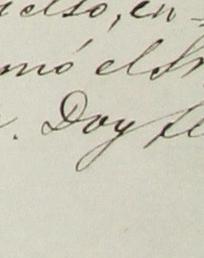 elso, en-
mó el Sr
. Doy fe